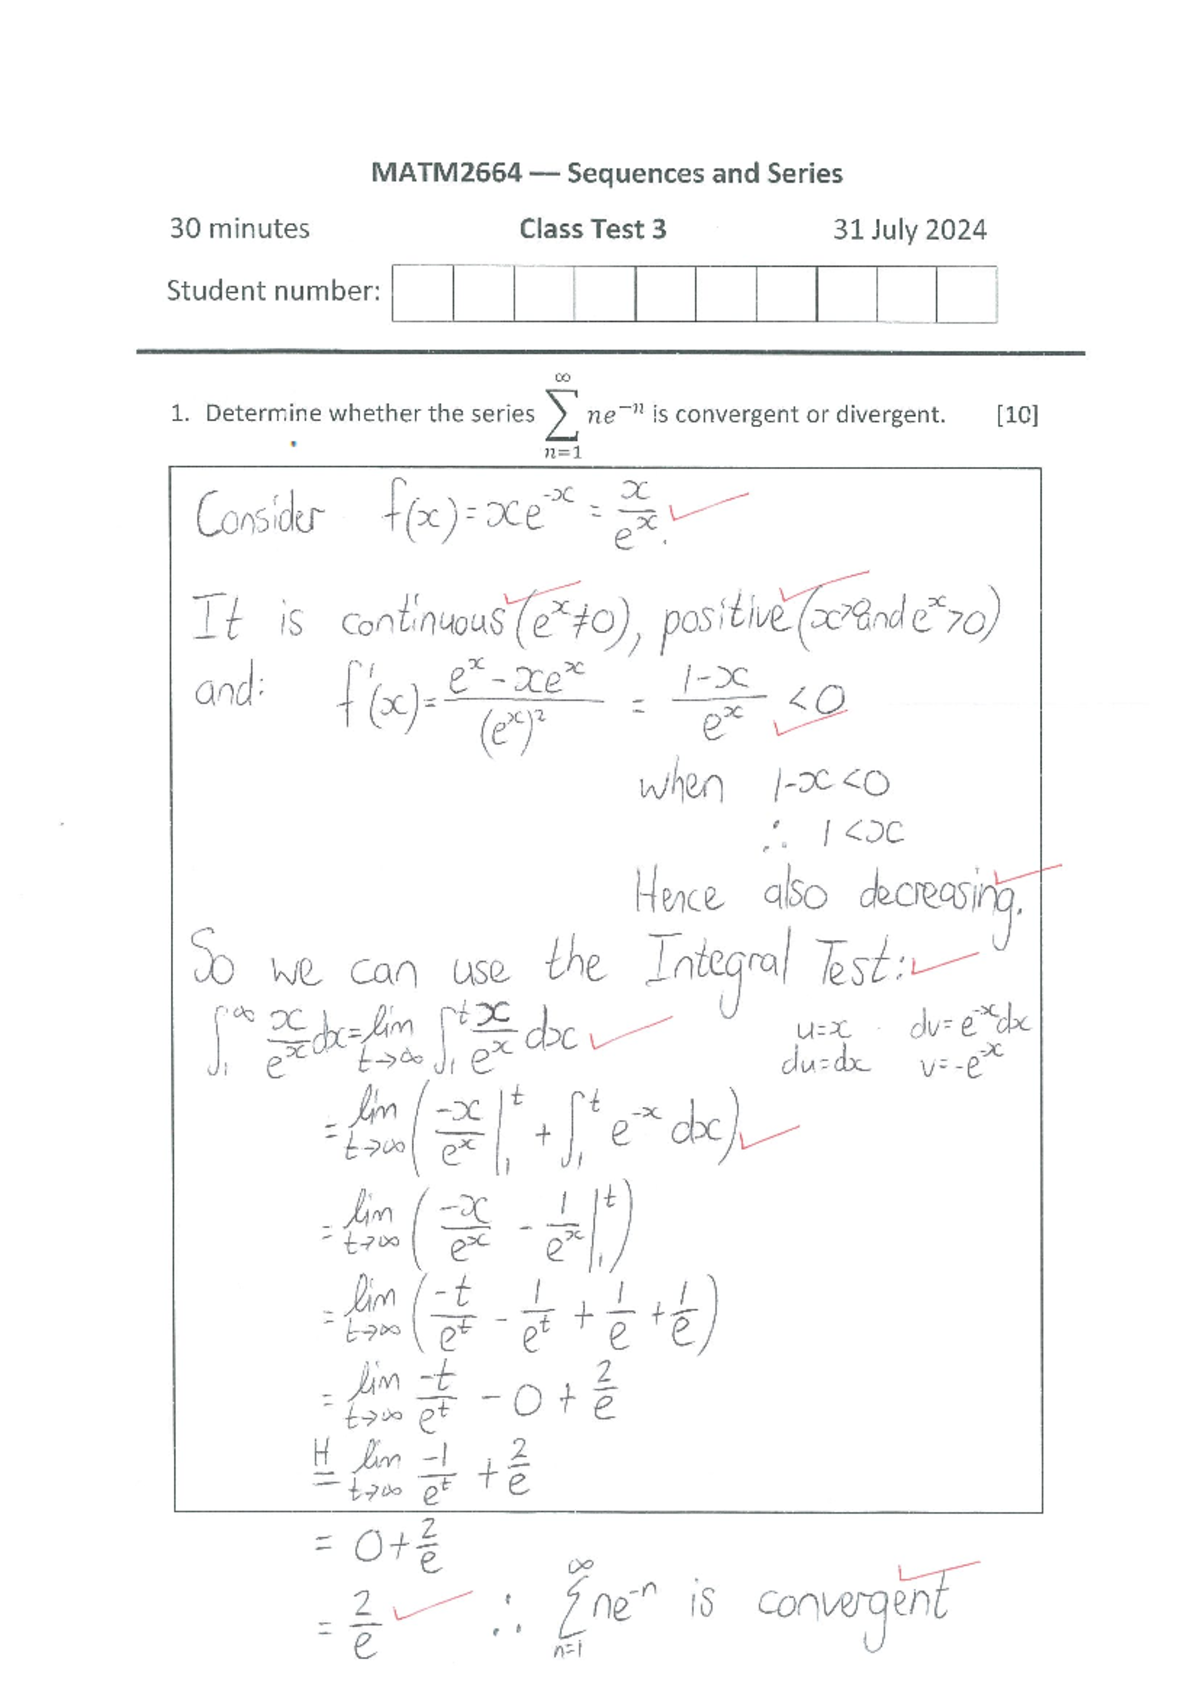 MATM2664 — Sequences and Series
30 minutes Class Test 3 31 July 2024
Student number:
1. Determine whether the series ∑_{n=1}^{∞} ne⁻ⁿ is convergent or divergent. [10]
Consider f(x) = xe^{-x} = x/e^x.
It is continuous (e^x ≠ 0), positive (x>0 and e^x > 0)
and: f'(x) = (e^x - xe^x)/(e^x)^2 = (1-x)/e^x < 0
when 1-x < 0
∴ 1 < x
Hence also decreasing.
So we can use the Integral Test:
∫_1^∞ x/e^x dx = lim_{t→∞} ∫_1^t x/e^x dx
u=x dv=e^{-x}dx
du=dx v=-e^{-x}
= lim_{t→∞} ( -x/e^x |_1^t + ∫_1^t e^{-x} dx )
= lim_{t→∞} ( -x/e^x - 1/e^x |_1^t )
= lim_{t→∞} ( -t/e^t - 1/e^t + 1/e + 1/e )
= lim_{t→∞} -t/e^t - 0 + 2/e
H= lim_{t→∞} -1/e^t + 2/e
= 0 + 2/e
= 2/e ∴ ∑_{n=1}^{∞} ne^{-n} is convergent